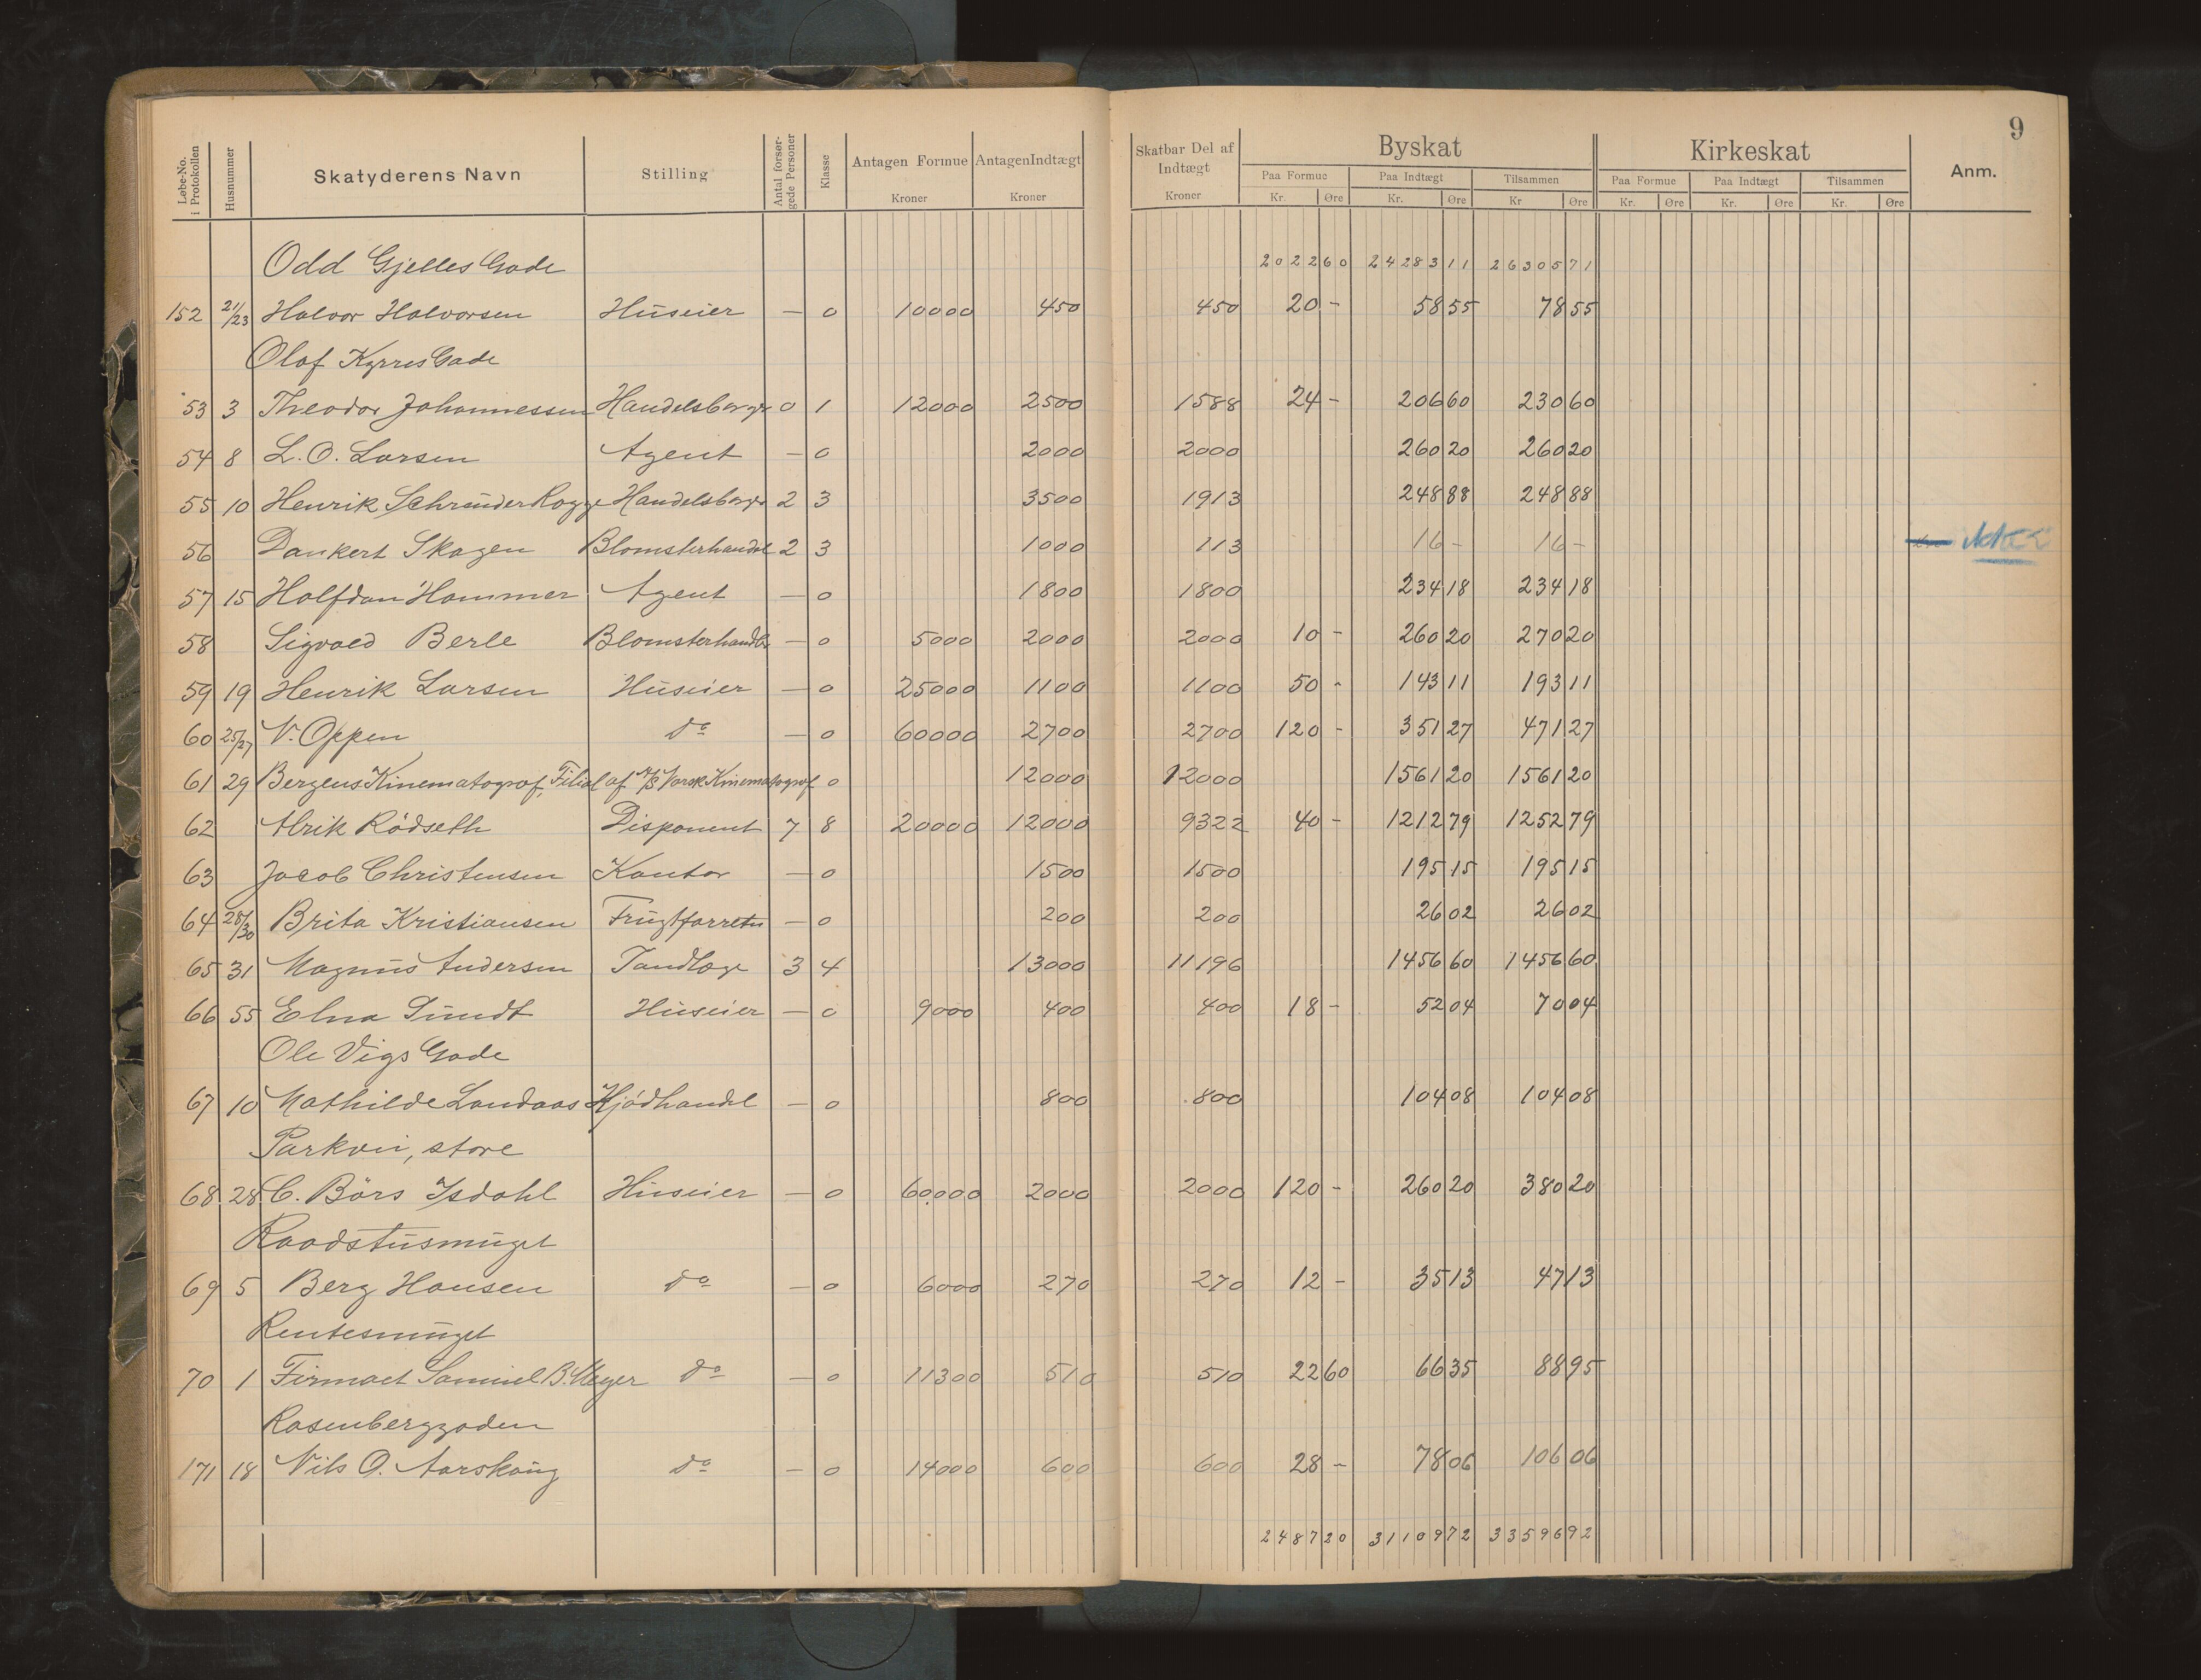 9
Løbe-No. i Protokollen Husnummer Skatyderens Navn Stilling Antal forsørgede Personer Klasse Antagen Formue Kroner Antagen Indtægt Kroner Skatbar Del af Indtægt Kroner Byskat Paa Formue Kr. Øre Paa Indtægt Kr. Øre Tilsammen Kr Øre Kirkeskat Paa Formue Kr. Øre Paa Indtægt Kr. Øre Tilsammen Kr. Øre Anm.
Odd Gjelles Gade 2022 60 24283 11 26305 71
152 21/23 Halvor Halvorsen Huseier — 0 10000 450 450 20 - 58 55 78 55
Olaf Kyrres Gade
53 3 Theodor Johannessen Handelsborger 0 1 12000 2500 1588 24 - 206 60 230 60
54 8 L. O. Larsen Agent — 0 2000 2000 260 20 260 20
55 10 Henrik Schrüder Rogge Handelsborger 2 3 3500 1913 248 88 248 88
56 Dankert Skagen Blomsterhandl 2 3 1000 113 16 - 16 -
57 15 Halfdan Hammer Agent — 0 1800 1800 234 18 234 18
58 Sigvald Berle Blomsterhandler — 0 5000 2000 2000 10 - 260 20 270 20
59 19 Henrik Larsen Huseier — 0 25000 1100 1100 50 - 143 11 193 11
60 25/27 V. Oppen do — 0 60000 2700 2700 120 - 351 27 471 27
61 29 Bergens Kinematograf, Filial af A/S Norsk Kinematograf 0 12000 12000 1561 20 1561 20
62 Alrik Rödseth Disponent 7 8 20000 12000 9322 40 - 1212 79 1252 79
63 Jacob Christensen Kontor — 0 1500 1500 195 15 195 15
64 28/30 Brita Kristiansen Frugtforretn — 0 200 200 26 02 26 02
65 31 Magnus Andersen Tandlæge 3 4 13000 11196 1456 60 1456 60
66 55 Elna Sundt Huseier — 0 9000 400 400 18 - 52 04 70 04
Ole Vigs Gade
67 10 Mathilde Landaas Kjødhandel — 0 800 800 104 08 104 08
Parkvei, store
68 28 C. Börs Isdahl Huseier — 0 60000 2000 2000 120 - 260 20 380 20
Raadstusmuget
69 5 Berg Hansen do — 0 6000 270 270 12 - 35 13 47 13
Rentesmuget
70 1 Firmaet Samuel B. Meyer do — 0 11300 510 510 22 60 66 35 88 95
Rosenberggaden
171 18 Nils O. Aarskoug do — 0 14000 600 600 28 - 78 06 106 06
2487 20 31109 72 33596 92